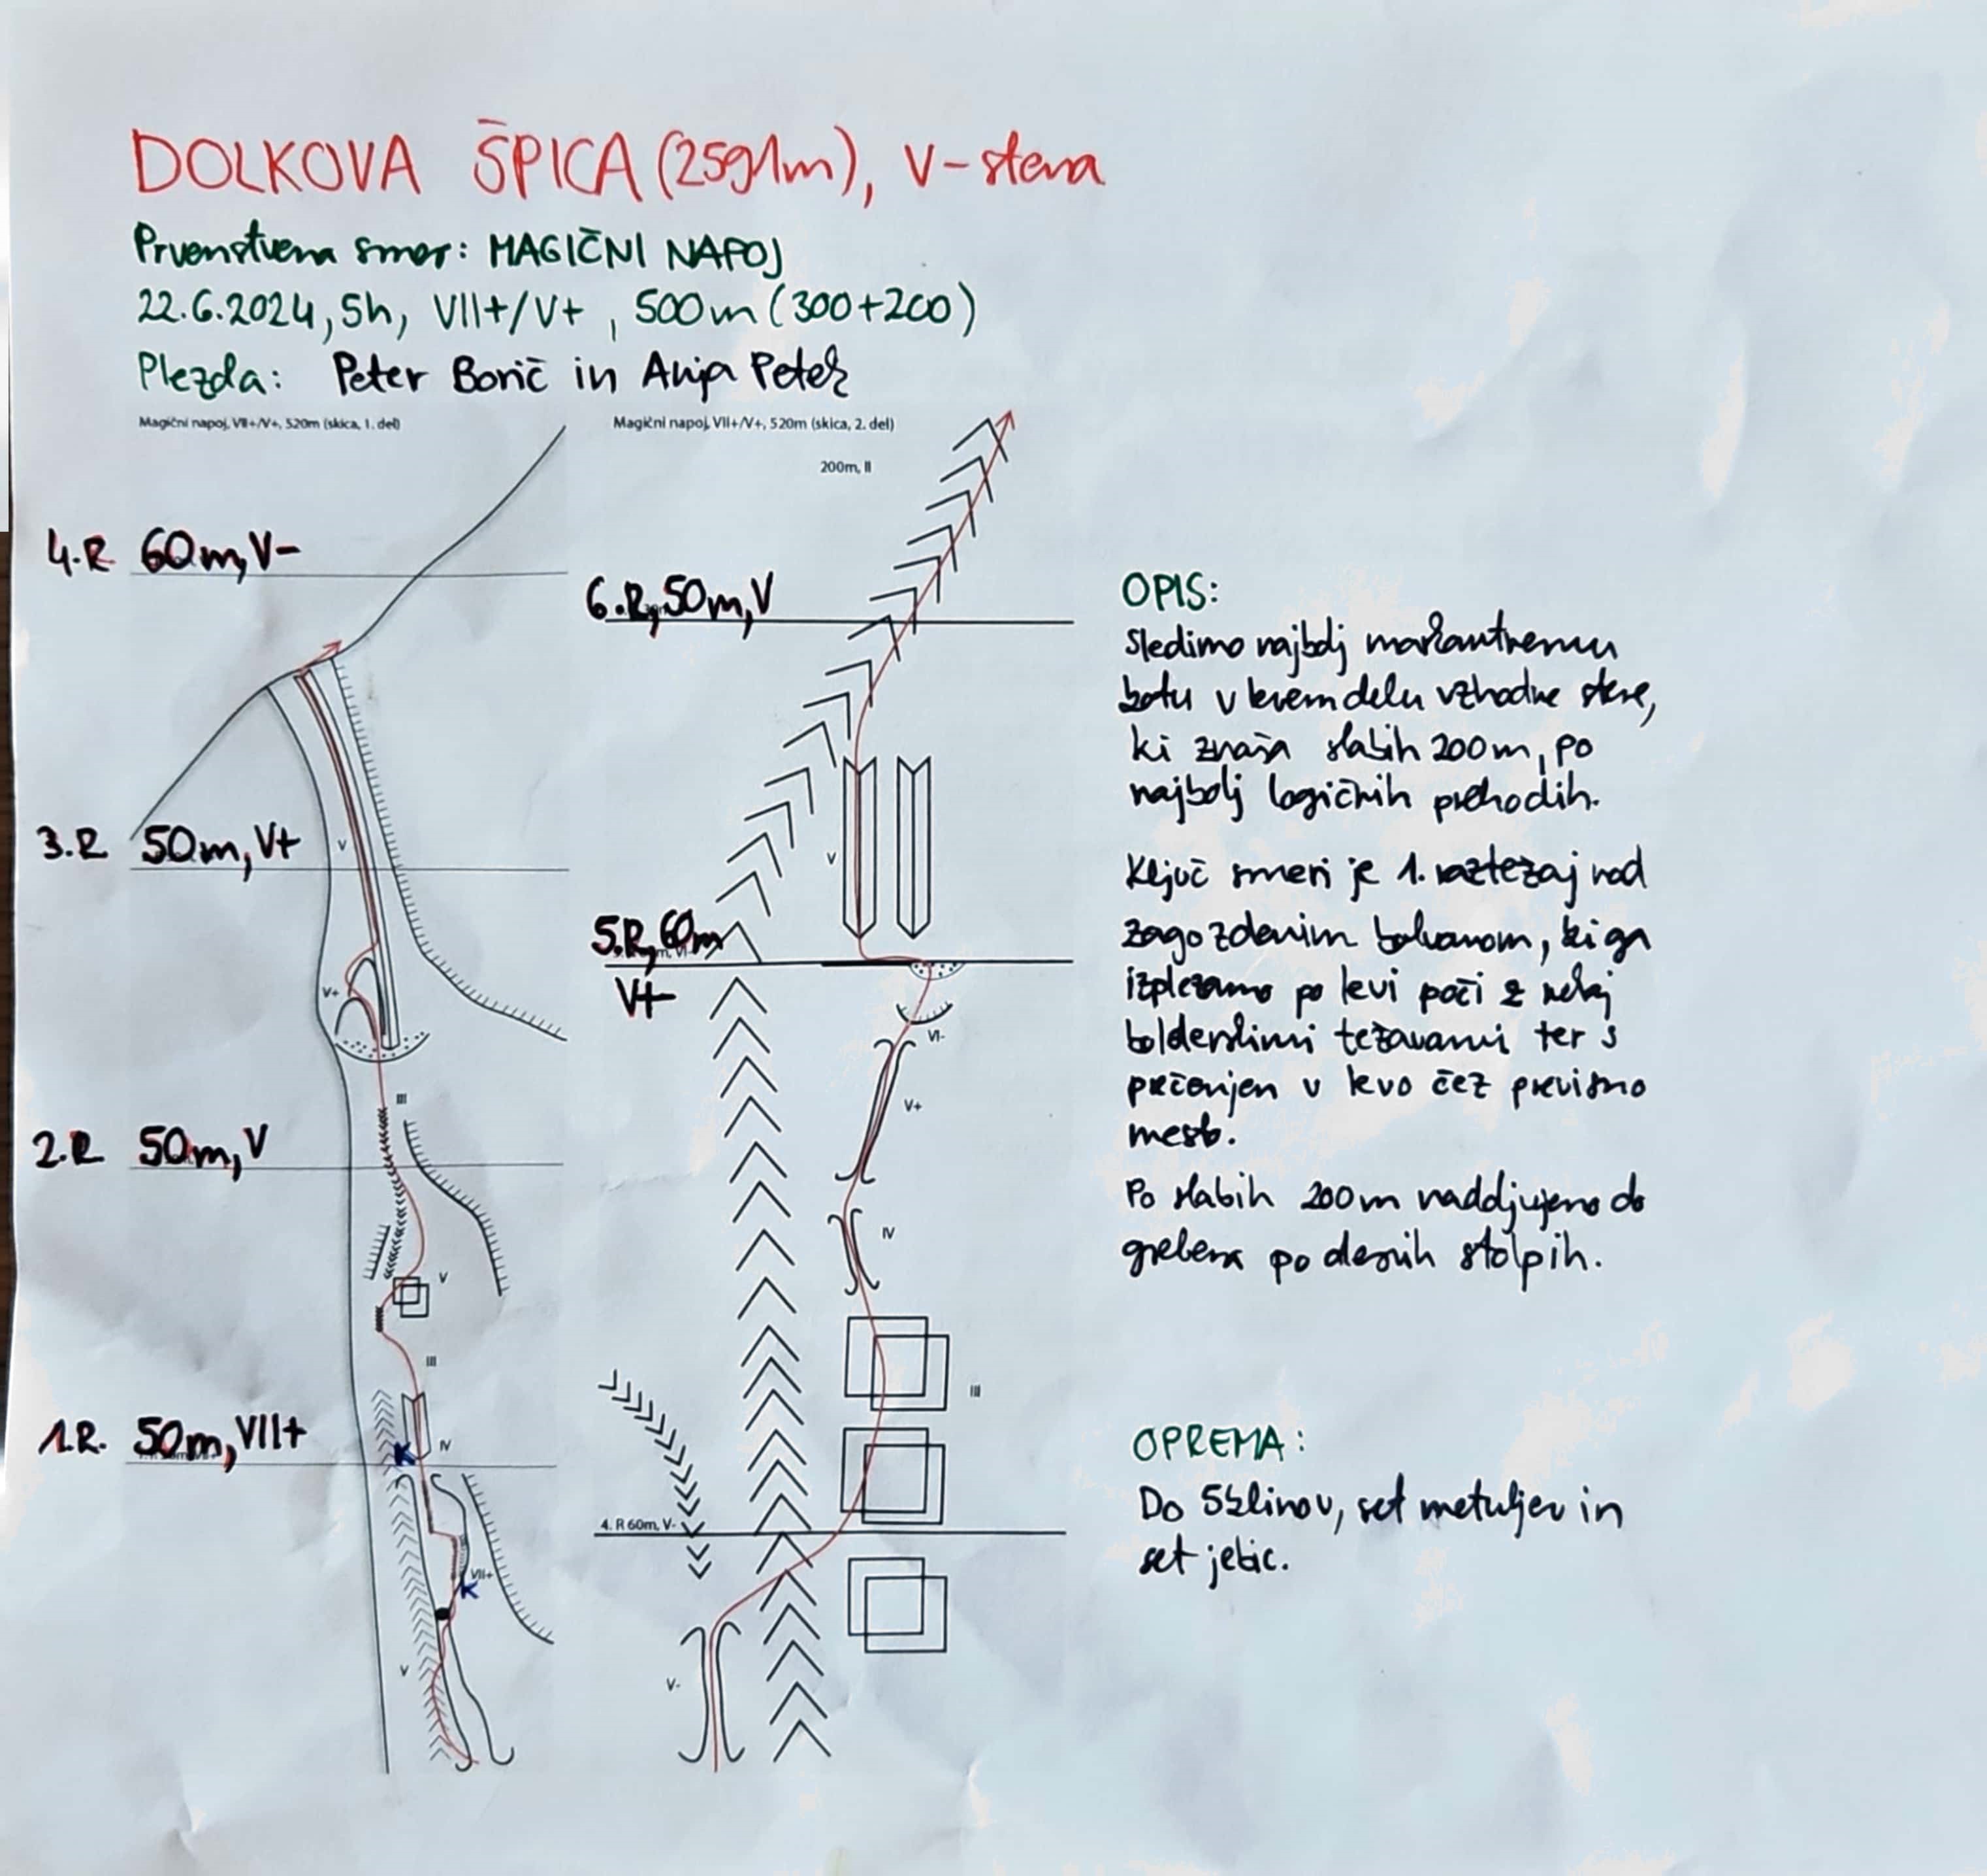 DOLKOVA ŠPICA (2591m), V-stena
Prvenstvena smer: MAGIČNI NAPOJ
22.6.2024, 5h, VII+/V+, 500m (300+200)
Plezala: Peter Borič in Anja Petek
Magični napoj, VII+/V+, 520m (skica, 1. del)
4.R 60m, V-
3.R 50m, V+
V
V+
III
2.R 50m, V
V
III
1.R. 50m, VII+
K
IV
VII+
K
V
Magični napoj, VII+/V+, 520m (skica, 2. del)
200m, II
6.R, 50m, V
V
5.R, 60m
V+
VI-
V+
IV
III
4. R 60m, V-
V-
OPIS:
Sledimo najbolj markantnemu
žotu v levem delu vzhodne stene,
ki znaša slabih 200m, po
najbolj logičnih prehodih.
Ključ smeri je 1. raztežaj nad
zagozdenim balvanom, ki ga
izplezamo po levi poči z nekaj
bolderskimi težavami ter s
prečenjem v levo čez previsno
mesto.
Po slabih 200m nadaljujemo do
grebena po desnih stolpih.
OPREMA:
Do 5 klinov, set metuljev in
set jebic.